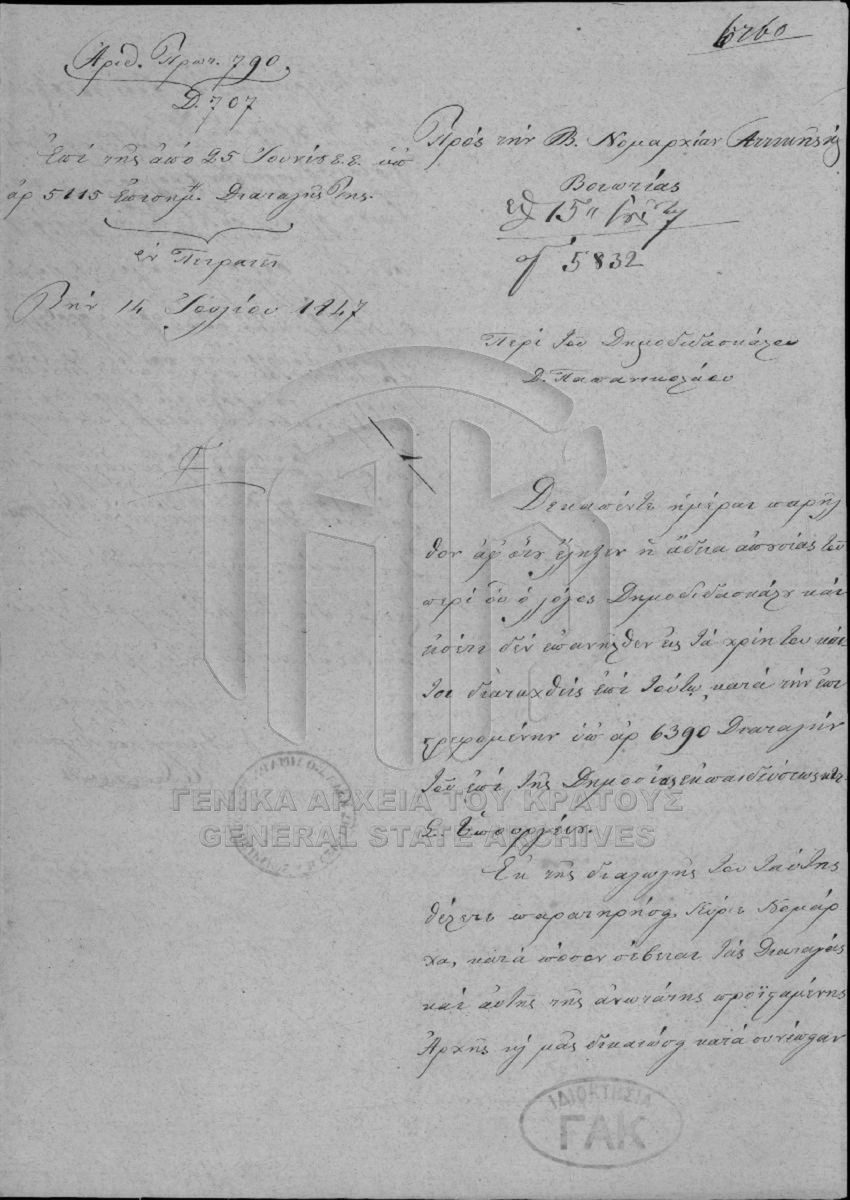 6260
Ἀριθ. Πρωτ. 790.
Δ. 707
Ἐπὶ τῆς ἀπὸ 25 Ἰουνίου ἐ.ἔ. ὑπ
ἀρ 5115 ἐπισήμ. Διαταγῆς της.
ἐν Πειραιεῖ
Τὴν 14 Ἰουλίου 1847
Πρὸς τὴν Β. Νομαρχίαν Ἀττικῆς κ
Βοιωτίας
15
5832
Περὶ τοῦ Δημοδιδασκάλου
Δ. Παπανικολάου
Δεκαπέντε ἡμέραι παρῆλ
θον ἀφ' ὅτου ἔληξεν ἡ ἄδεια ἀπουσίας τοῦ
περὶ οὗ ὁ λόγος Δημοδιδασκάλου καὶ
εἰσέτι δὲν ἐπανῆλθεν εἰς τὰ χρέη του καί
τοι διαταχθεὶς ἐπὶ τούτῳ κατὰ τὴν ἐπι
στρεφομένην ὑπ ἀρ 6390 Διαταγὴν
τοῦ ἐπὶ τῆς Δημοσίας ἐκπαιδεύσεως κτλ.
Σ. Ὑπουργείου.
Ἐκ τῆς διαγωγῆς του ταύτης
θέλετε παρατηρήσῃ, Κύριε Νομάρ
χα, κατὰ πόσον σέβεται τὰς Διαταγὰς
καὶ αὐτῆς τῆς ἀνωτάτης προϊσταμένης
Ἀρχῆς κ μᾶς δικαιώσῃ κατὰ συνέπειαν
ΓΕΝΙΚΑ ΑΡΧΕΙΑ ΤΟΥ ΚΡΑΤΟΥΣ
GENERAL STATE ARCHIVES
ΙΔΙΟΚΤΗΣΙΑ
ΓΑΚ